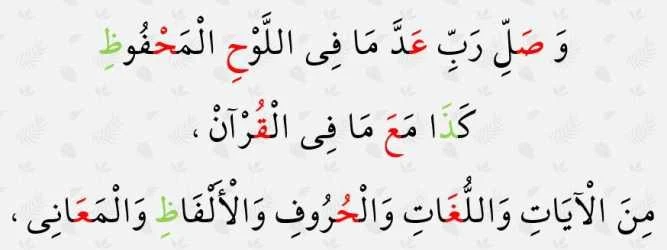 وَ صَلِّ رَبِّ عَدَّ مَا فِى اللَّوْحِ الْمَحْفُوظِ
كَذَا مَعَ مَا فِى الْقُرْآنْ ،
مِنَ الْآيَاتِ وَاللُّغَاتِ وَالْحُرُوفِ وَالْأَلْفَاظِ وَالْمَعَانِى ،